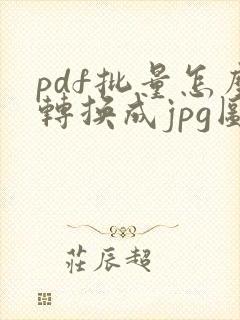 pdf批量怎
轉換成jpg
莊辰超